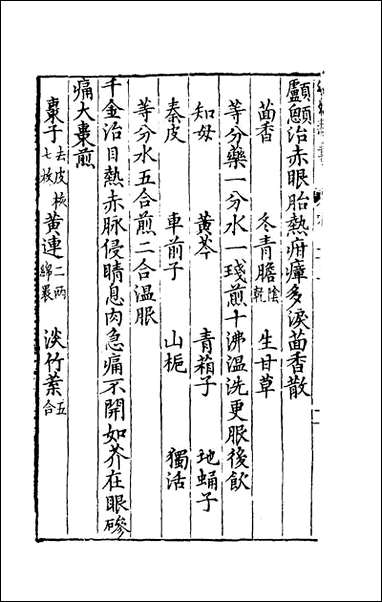 顱顖治赤眼胎熱疳瘴多淚茴香散
茴香　冬青膽陰乾　生甘草
等分藥一分水一琖煎十沸溫洗更服後飲
知母　黃芩　青葙子　地蛹子
秦皮　車前子　山梔　獨活
等分水五合煎二合溫服
千金治目熱赤脉侵睛息肉急痛不開如芥在眼磣
痛大棗煎
棗子七枚去皮核　黃連二兩綿裹　淡竹葉五合